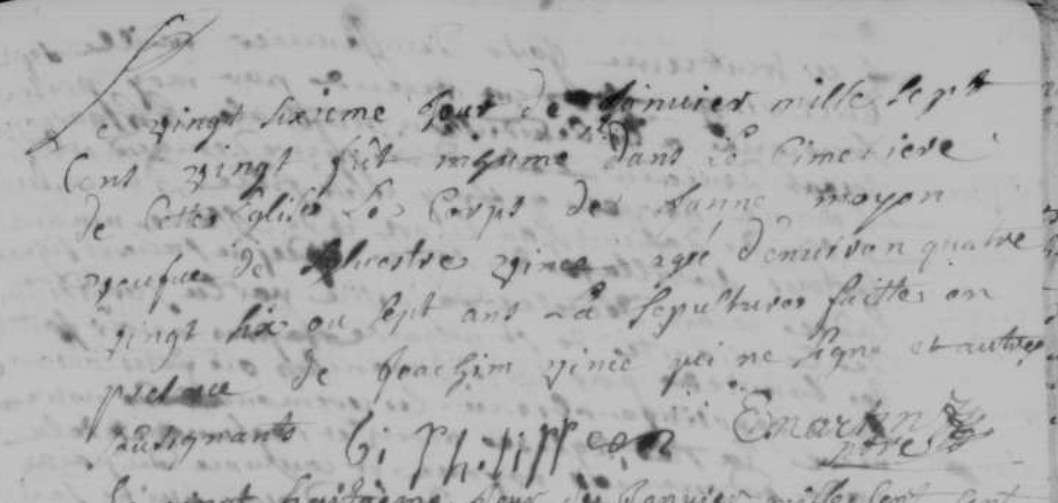 Le vingt sixieme jour de Janvier mille Sept
Cent vingt fut inhumé dans le Cimetiere
de Cette Eglise Le Corps de Janne moyon
veufue de Silvestre vince agé denuiron quatre
vingt six ou sept ans La Sepulture faitte en
presence de Joachim vince qui ne signe et autres
sousignants G: Philippeon E martin
pbre
vingt huitieme jour de Janvier mille Sept Cent